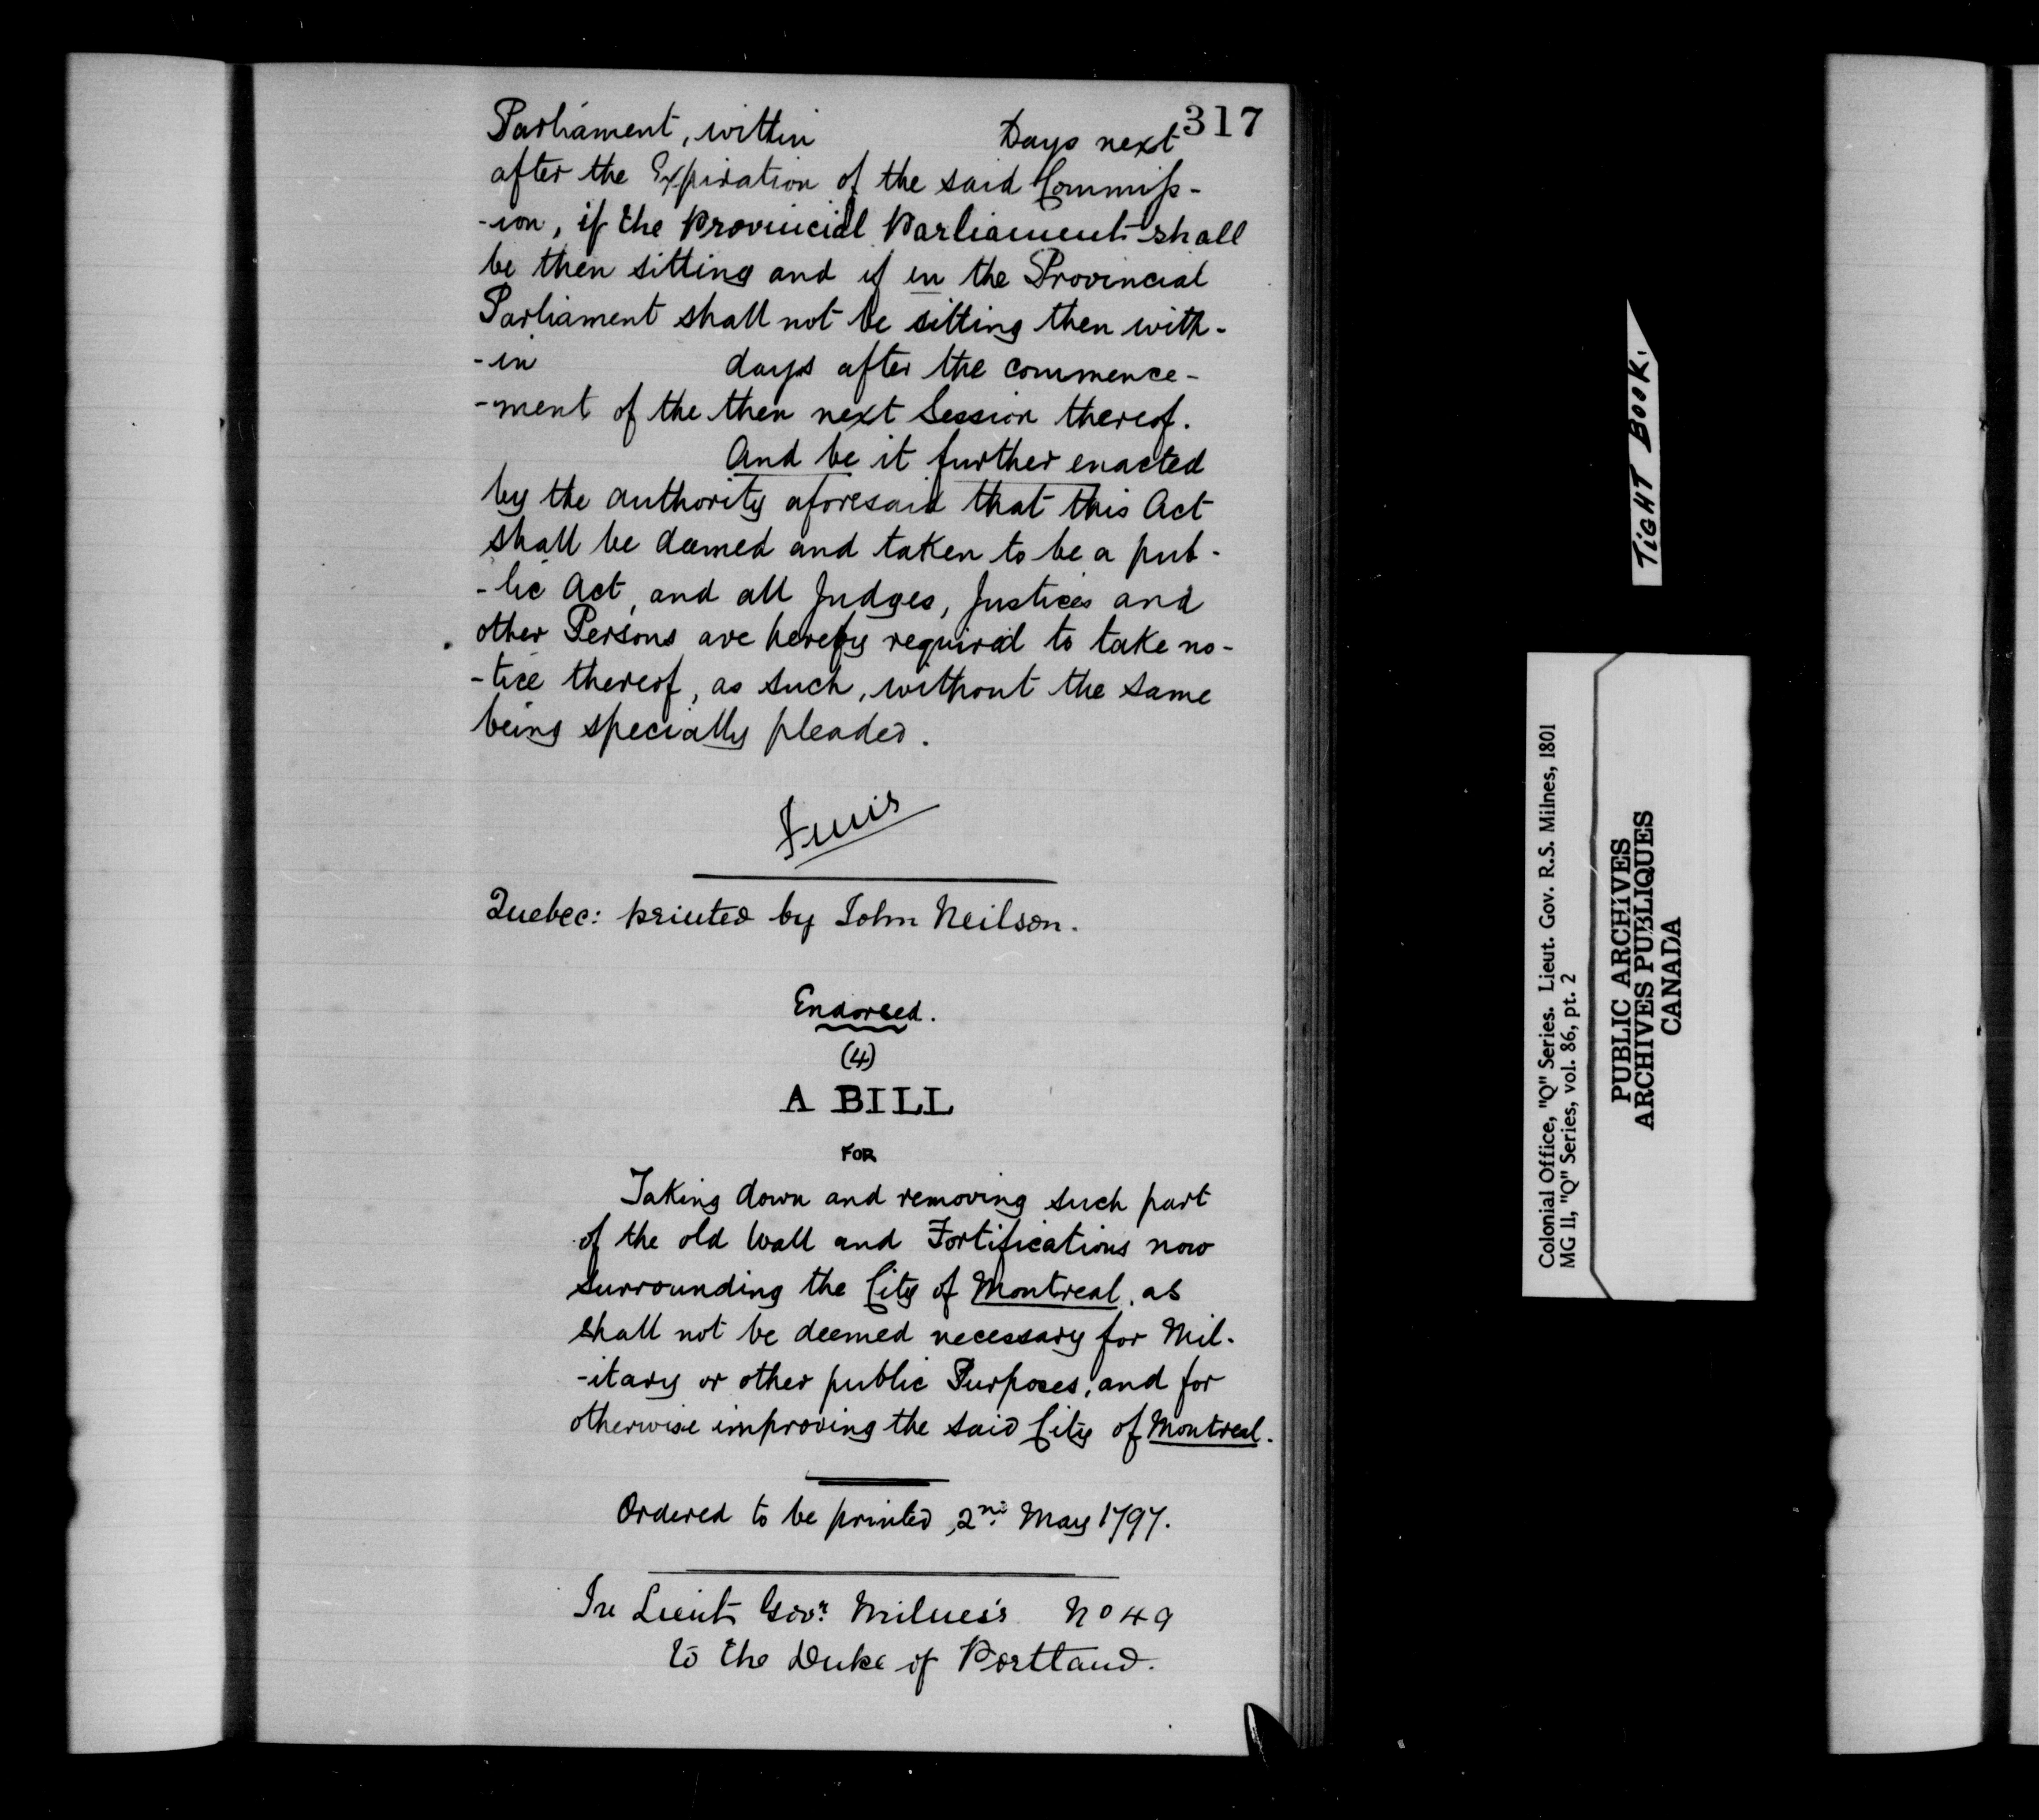 317
Parliament, within Days next
after the Expiration of the said Commiss-
-ion, if the Provincial Parliament shall
be then sitting and if in the Provincial
Parliament shall not be sitting then with-
-in days after the commence-
-ment of the then next Session thereof.
And be it further enacted
by the authority aforesaid that this Act
shall be deemed and taken to be a pub-
-lic Act, and all Judges, Justices and
other Persons are hereby required to take no-
-tice thereof, as such, without the same
being specially pleaded.
Finis
Quebec: printed by John Neilson.
Endorsed.
(4)
A BILL
FOR
Taking down and removing such part
of the old Wall and Fortifications now
surrounding the City of Montreal, as
shall not be deemed necessary for Mil-
-itary or other public Purposes, and for
otherwise improving the said City of Montreal.
Ordered to be printed, 2nd May 1797.
In Lieut Govr. Milnes's No 49
to the Duke of Portland.
TIGHT BOOK.
Colonial Office, "Q" Series. Lieut. Gov. R.S. Milnes, 1801
MG 11, "Q" Series, vol. 86, pt. 2
PUBLIC ARCHIVES
ARCHIVES PUBLIQUES
CANADA